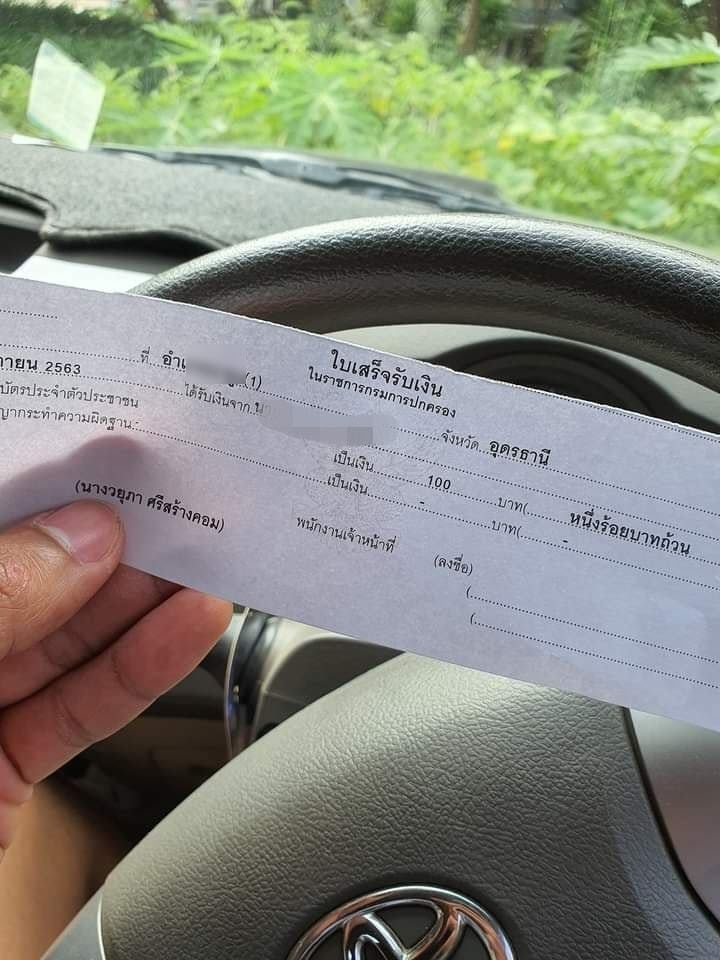 ใบเสร็จรับเงิน
ในราชการกรมการปกครอง
ายน 2563 ที่ อำเ (1) จังหวัด อุดรธานี
บัตรประจำตัวประชาชน ได้รับเงินจาก เป็นเงิน 100 บาท( หนึ่งร้อยบาทถ้วน
ญากระทำความผิดฐาน:- เป็นเงิน - บาท( -
(นางวยุภา ศรีสร้างคอม) พนักงานเจ้าหน้าที่ (ลงชื่อ)
(
(